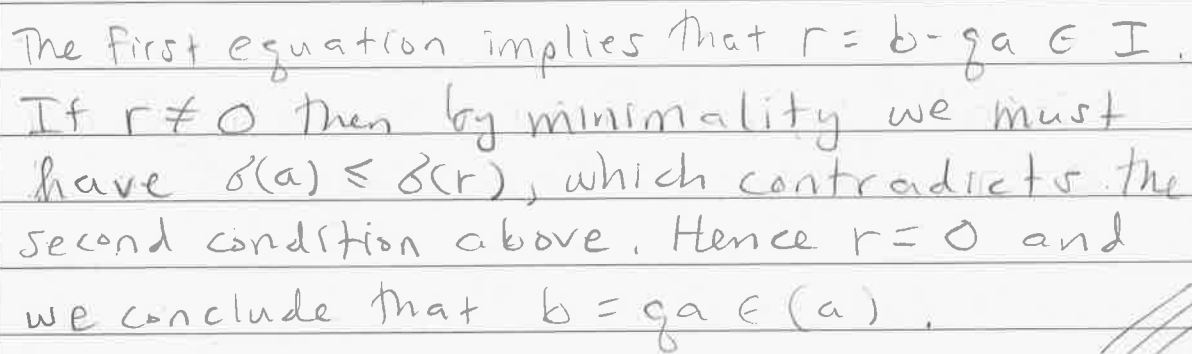 The first equation implies that r = b - qa ∈ I.
If r ≠ 0 then by minimality we must
have δ(a) ≤ δ(r), which contradicts the
second condition above. Hence r = 0 and
we conclude that b = qa ∈ (a).